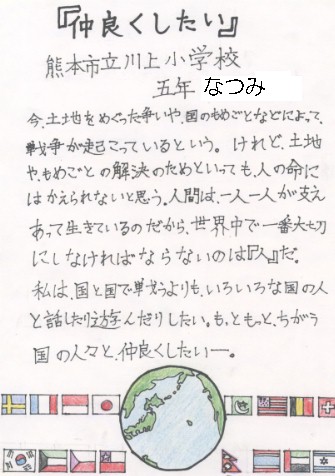 『仲良くしたい』
熊本市立川上小学校
五年 なつみ
今、土地をめぐった争いや、国のもめごとなどによって、
戦争が起こっているという。けれど、土地
や、もめごとの解決のためといっても、人の命に
はかえられないと思う。人間は、一人一人が支え
あって生きているのだから、世界中で一番大切
にしなければならないのは『人』だ。
私は、国と国で戦うよりも、いろいろな国の人
と話したり遊んだりしたい。もっともっと、ちがう
国の人々と、仲良くしたいー。